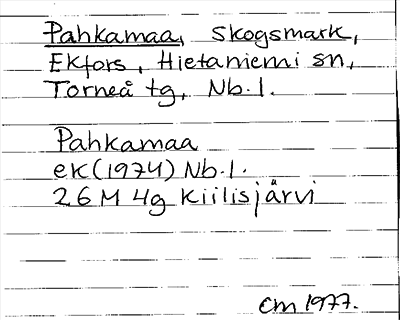 Pahkamaa, Skogsmark,
Ekfors, Hietaniemi sn,
Torneå tg, Nb.l.
Pahkamaa
ek(1974) Nb.l.
26M 4g Kiilisjärvi
CM 1977.